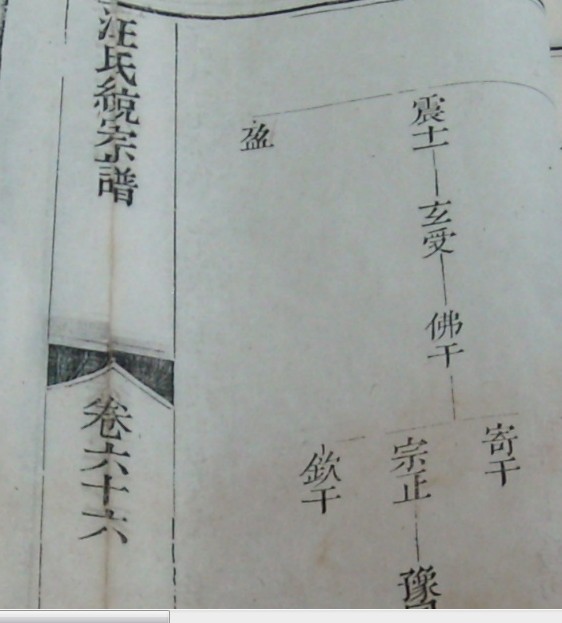 汪氏統宗譜
卷六十六
震土
玄受
佛干
寄干
宗正
欽干
盈
豫